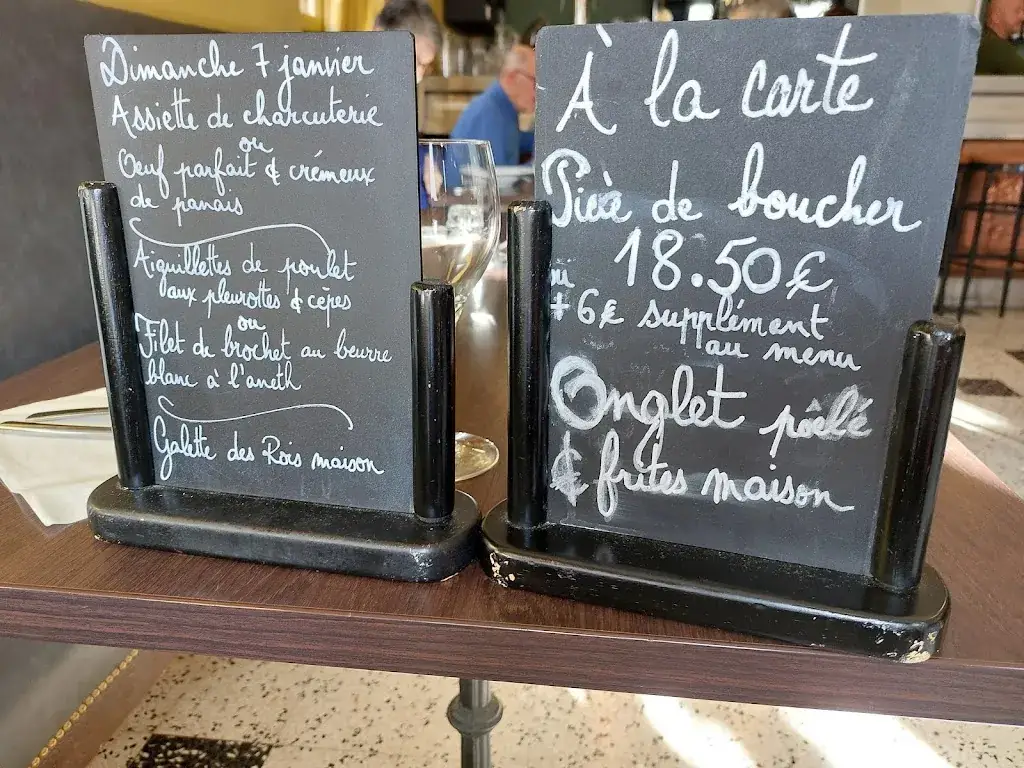 Dimanche 7 janvier
Assiette de charcuterie
ou
Oeuf parfait & crémeux
de panais
Aiguillettes de poulet
aux pleurottes & cèpes
ou
Filet de brochet au beurre
blanc à l'aneth
Galette des Rois maison
À la carte
Pièce de boucher
18.50€
ou
+6€ supplément
au menu
Onglet poêlé
& frites maison